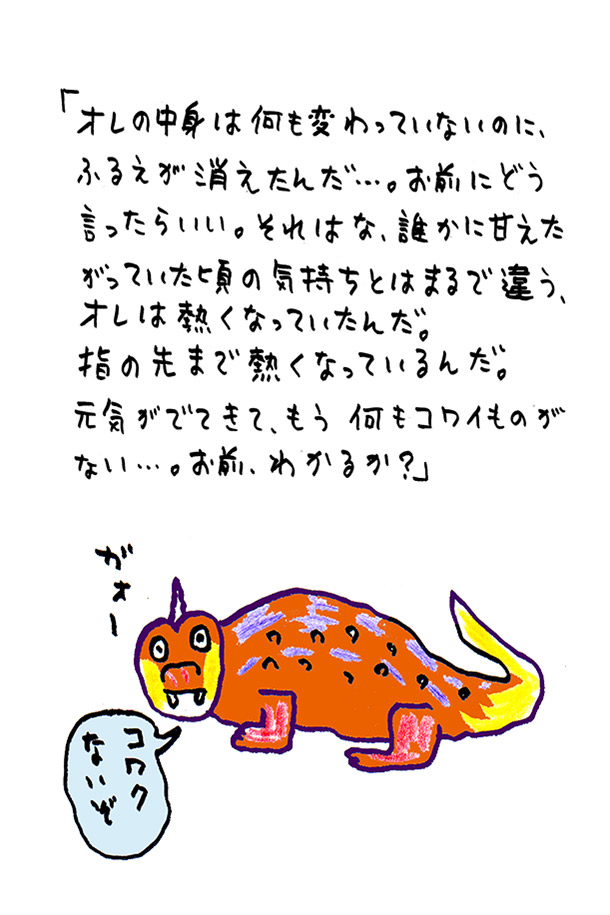 「オレの中身は何も変わっていないのに、
ふるえが消えたんだ…。お前にどう
言ったらいい。それはな、誰かに甘えた
がっていた頃の気持ちとはまるで違う、
オレは熱くなっていたんだ。
指の先まで熱くなっているんだ。
元気がでてきて、もう何もコワイものが
ない…。お前、わかるか？」
ガオー
コワク
ないぞ